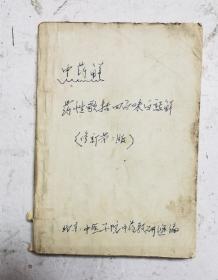 中药鲜
药性歌括四百味白话解
(修订第二版)
北京中医学院中药教研组编